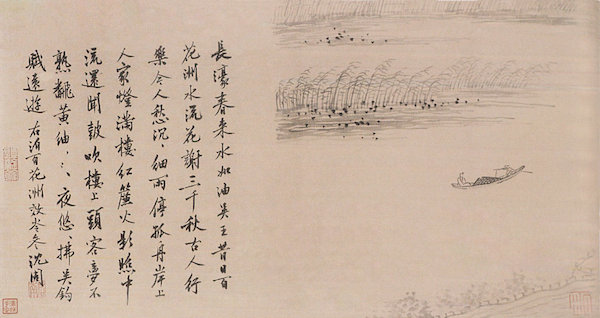 長濠春來水如油吳王昔日百
花洲水流花謝三千秋古人行
樂令人愁沉〻細雨停孤舟岸上
人家燈滿樓紅簾火影照中
流還聞鼓吹樓上頭客夢不
熟翻黃紬〻〻夜悠〻拂吳鉤
賦遠遊 右泊百花洲效岑參 沈周